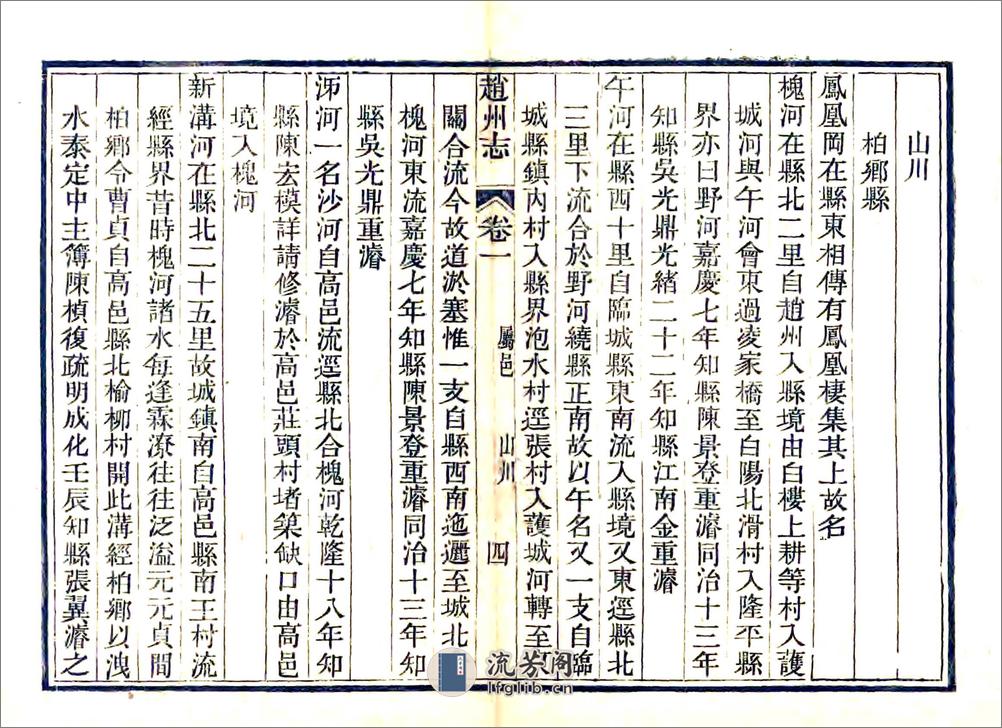 山川
柏鄉縣
鳳凰岡在縣東相傳有鳳凰棲集其上故名
槐河在縣北二里自趙州入縣境由白樓上耕等村入護
城河與午河會東過凌家橋至白陽北滑村入隆平縣
界亦曰野河嘉慶七年知縣陳景登重濬同治十三年
知縣吳光鼎光緒二十二年知縣江南金重濬
午河在縣西十里自臨城縣東南流入縣境又東逕縣北
三里下流合於野河繞縣正南故以午名又一支自臨
城縣鎮內村入縣界泡水村逕張村入護城河轉至
趙州志
卷一
屬邑
山川
四
關合流今故道淤塞惟一支自縣西南迤邐至城北
槐河東流嘉慶七年知縣陳景登重濬同治十三年知
縣吳光鼎重濬
泲河一名沙河自高邑流逕縣北合槐河乾隆十八年知
縣陳宏模詳請修濬於高邑莊頭村堵築缺口由高邑
境入槐河
新溝河在縣北二十五里故城鎮南自高邑縣南王村流
經縣界昔時槐河諸水每逢霖潦往往泛溢元元貞間
柏鄉令曹貞自高邑縣北榆柳村開此溝經柏鄉以洩
水泰定中主簿陳楨復疏明成化壬辰知縣張翼濬之
流芳阁
lfglib.cn